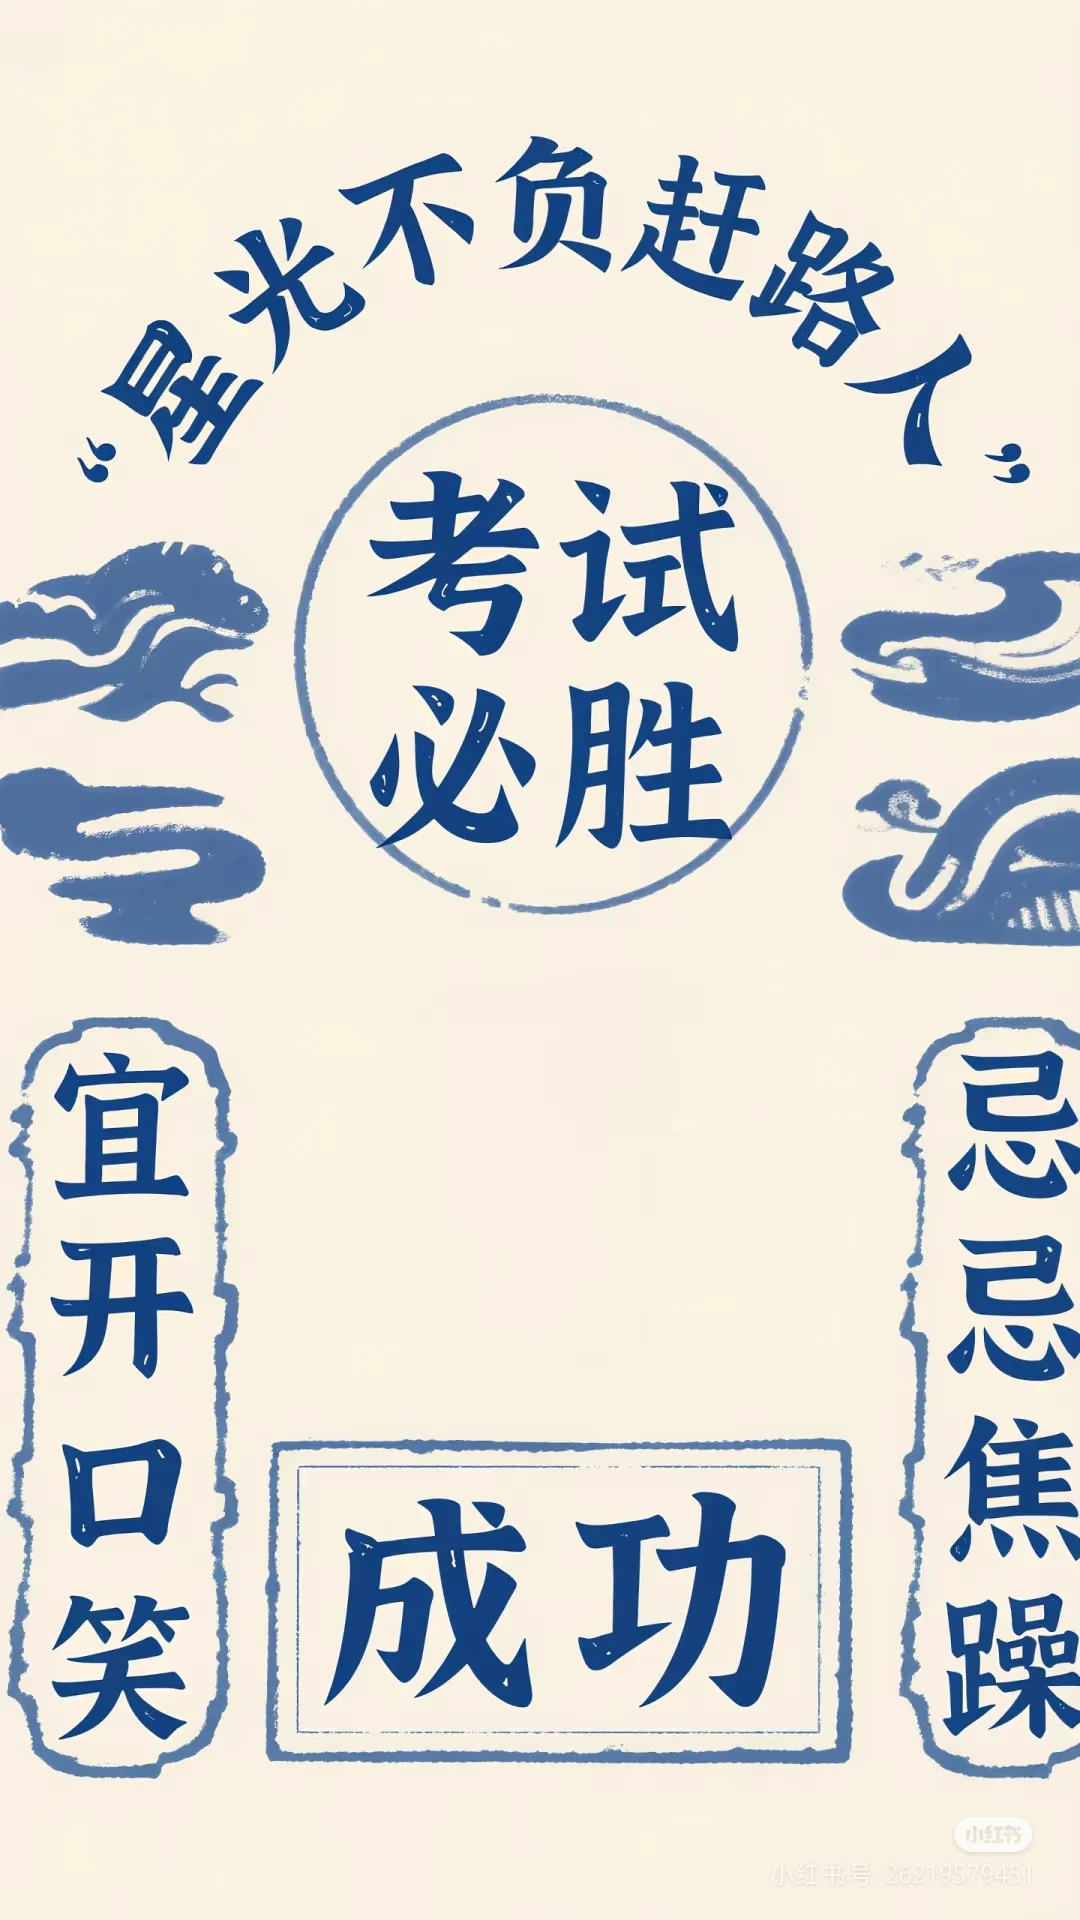 “星光不负赶路人”
考试
必胜
宜开口笑
忌忌焦躁
成功
小红书
小红书号 26219579451